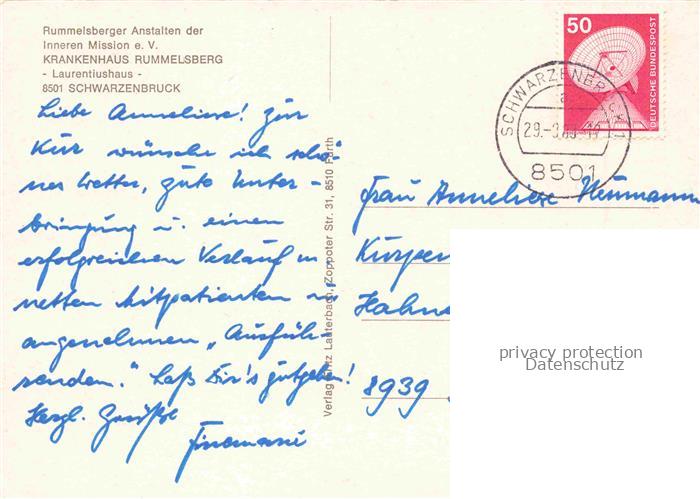 Rummelsberger Anstalten der
Inneren Mission e. V.
KRANKENHAUS RUMMELSBERG
- Laurentiushaus -
8501 SCHWARZENBRUCK
Liebe Anneliese! Zur
Kur wünsche ich schö-
nes Wetter, gute Unter-
bringung u. einen
erfolgreichen Verlauf m.
netten Mitpatienten u.
angenehmen „Ausfüh-
renden." Laß Dir's gutgehen!
Herzl. Grüße
Verlag Fritz Lauterbach, Zoppoter Str. 31, 8510 Fürth
50
DEUTSCHE BUNDESPOST
8501
Frau Anneliese Neumann
Kurpen
Hahn
8939
privacy protection
Datenschutz